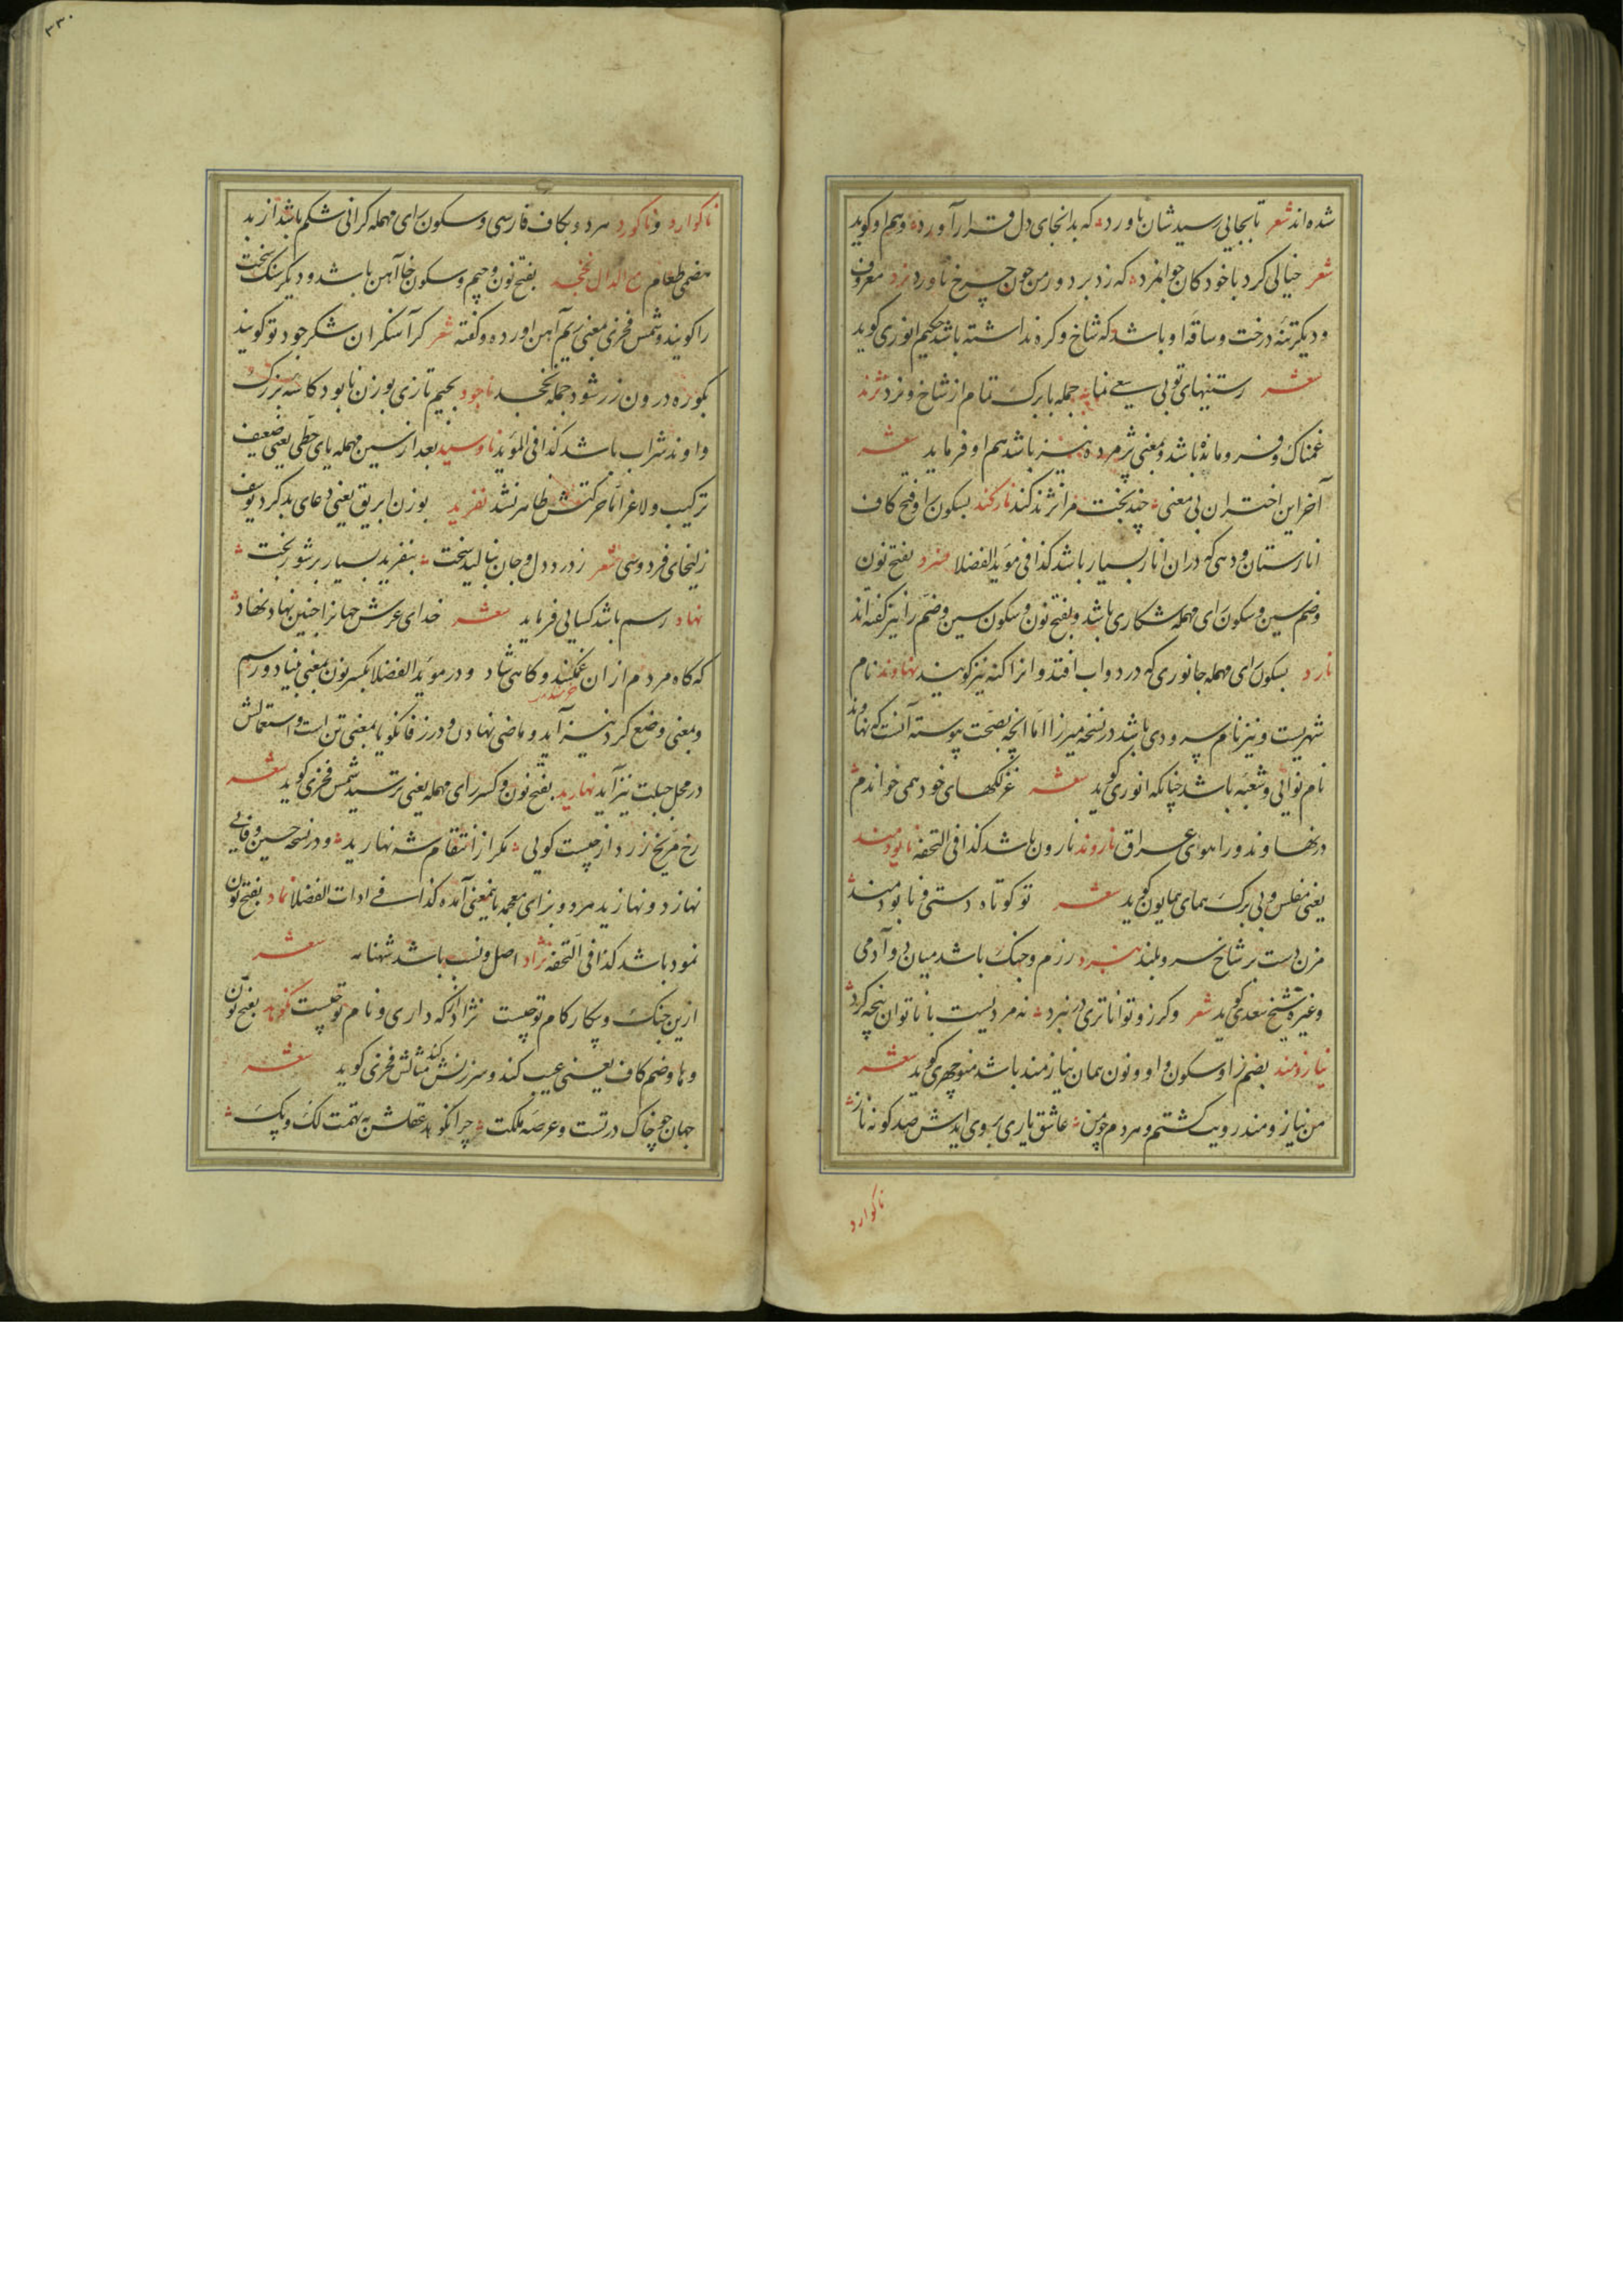 شده اند شعر تا بجایی رسید شان ناورد که بدانجای دل قرار آورد وهم او کوید
شعر خیالی کرد با خود کان جوانمرد که زد برد ور من چون چرخ ناورد نرد معروف
ودیکر تنهٔ درخت وساقهٔ او باشد که شاخ وکره نداشته باشد حکیم انوری کوید
شعر رستنیهای تو بی سعی نما جمله با برک تمام از شاخ ونرد نژند
غمناک وفرومانده باشد وبمعنی پژمرده نیز باشد هم او فرماید شعر
آخر این اختران بی معنی چند بخت مرا نژند کند نارکند بسکون را وفتح کاف
انارستان ودهی که دران انار بسیار باشد کذا فی موید الفضلا نسرد بفتح نون
وضم سین وسکون رای مهمله شکاری باشد وبفتح نون وسکون سین وضم را نیز کفته اند
نارد بسکون رای مهمله جانوری که در دواب افتد وانرا کنه نیز کویند نهاوند نام
شهریست ونیز نام سرودی باشد در نسخه میرزا اما انچه بصحت پیوسته آنست که نهاوند
نام نوائی وشعبه باشد چنانکه انوری کوید شعر غزلکهای خود همی خواندم
در نهاوند وراهوی عراق ناروند نارون باشد کذا فی التحفه نابودمند
یعنی مفلس وبی برک همای همایون کوید شعر تو کوتاه دستی ونابودمند
مزن دست بر شاخ سرو بلند نبرد رزم وجنک باشد میان دو آدمی
وغیره شیخ سعدی کوید شعر وکر زو تواناتری در نبرد نه مردیست با ناتوان پنجه کرد
نیازومند بضم زا وسکون واو ونون همان نیازمند باشد منوچهری کوید شعر
من نیازومند رویت کشتم وهردم چومن عاشق یاری بروی ایدش صد کونه ناز
ناکوارد
۲۳۰
ناکوارد وناکورد هردو بکاف فارسی وسکون رای مهمله کرانی شکم باشد از بد
هضمی طعام مع الدال نخجد بفتح نون وجیم وسکون خا آهن باشد ودیکر سنک سخت
را کویند وشمس فخری بمعنی ریم آهن اورده وکفته شعر کر آسنکران شکر جود تو کویند
بکوره درون زر شود جمله نخجد ناجود بجیم تازی بوزن نابود کاسه بزرک
واوند شراب باشد کذا فی الموید ناوسید بعد از سین مهمله یای حطی یعنی ضعیف
ترکیب ولاغر اما حرکتش ظاهر نشد نفرید بوزن ابریق یعنی دعای بد کرد یوسف
زلیخای فردوسی شعر ز درد دل وجان بنالید سخت بنفرید بسیار بر شور بخت
نهاد رسم باشد کسایی فرماید شعر خدای عرش جهانرا چنین نهاد نهاد
که کاه مردم ازان غمکیند وکاهی شاد ودر موید الفضلا بکسر نون بمعنی بنیاد ورسم
وبمعنی وضع کردنیز آید وماضی نهادن ودر زفانکویا بمعنی تن است واستعمالش
در محل جبلت نیز آید نهارید بفتح نون وکسر رای مهمله یعنی ترسید شمس فخری کوید شعر
رخ مریخ زرد از چیست کویی مکر از انتقام شه نهارید ودر نسخه حسین وفایی
نهازد ونهازید هردو بزای معجمه بایمعنی آمده کذا فی ادات الفضلا نماد بفتح نون
نمود باشد کذا فی التحفه نژاد اصل ونسب باشد شهنامه شعر
ازین جنک وپیکار کام تو چیست نژاد از که داری ونام تو چیست نکوهد بفتح نون
وها وضم کاف یعنی عیب کند وسرزنش کند مثالش فخری کوید شعر
جهان چو خاک درتست وعرصه ملکت چرا نکوهد عقلش به تهمت لک وپک